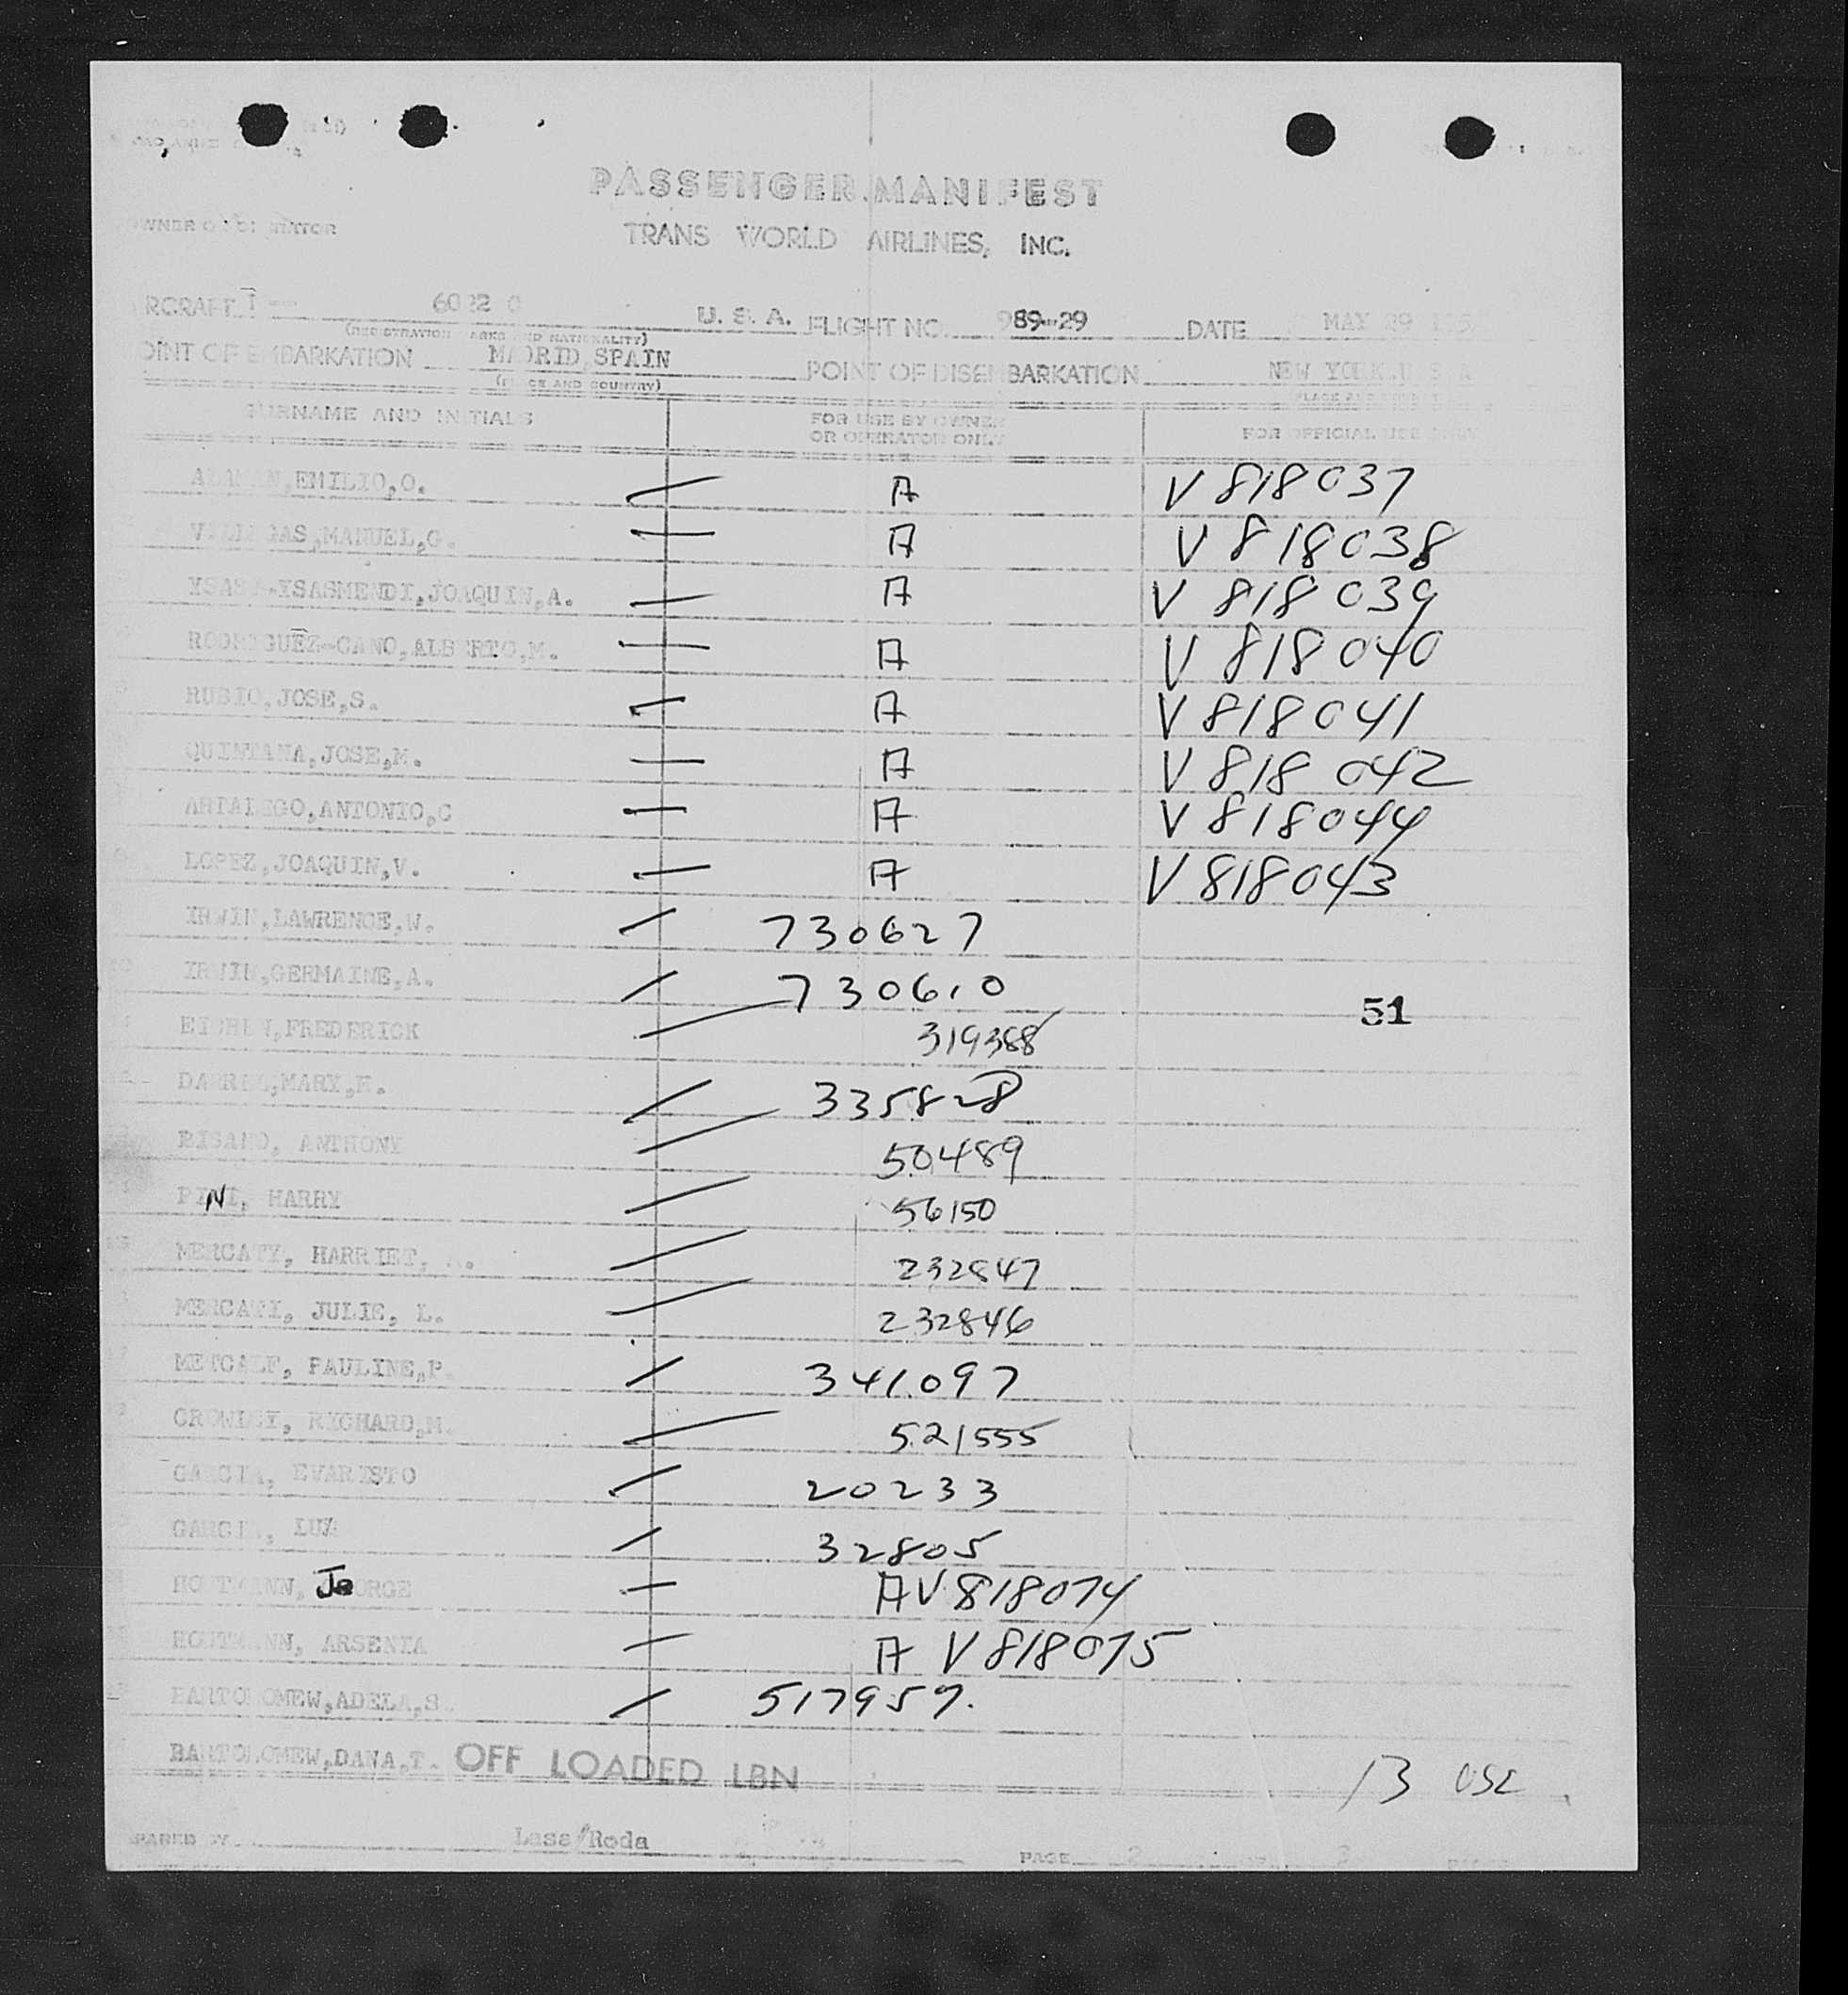 PASSENGER MANIFEST
OWNER OR OPERATOR TRANS WORLD AIRLINES, INC.
AIRCRAFT 6022 C U. S. A. FLIGHT NO. 989-29 DATE MAY 29
(REGISTRATION MARKS AND NATIONALITY)
POINT OF EMBARKATION MADRID, SPAIN POINT OF DISEMBARKATION NEW YORK, U S A
(PLACE AND COUNTRY) (PLACE AND COUNTRY)
SURNAME AND INITIALS FOR USE BY OWNER OR OPERATOR ONLY FOR OFFICIAL USE ONLY
EMILIO,O. A V 818037
MANUEL,G. A V 818038
YSASMENDI,JOAQUIN,A. A V 818039
RODRIGUEZ-CANO,ALBERTO,M. A V 818040
RUBIO,JOSE,S. A V 818041
QUINTANA,JOSE,M. A V 818042
ANTONIO,C A V 818044
LOPEZ,JOAQUIN,V. A V 818043
IRWIN,LAWRENCE,W. 730627
IRWIN,GERMAINE,A. 730610
51
FREDERICK 319388
MARY,H. 335828
PISANO, ANTHONY 50489
PINI, HARRY 56150
MERCATY, HARRIET, 232847
MERCATI, JULIE, L. 232846
METCALF, PAULINE,P. 341097
CROWLEY, RICHARD,M. 521555
GARCIA, EVARISTO 20233
GARCIA, LUZ 32805
HOUTMANN, JeORGE A V 818074
HOUTMANN, ARSENIA A V 818075
BARTOLOMEW,ADELA,S. 517957.
BARTOLOMEW,DANA,T. OFF LOADED LBN
13 USC
PREPARED BY Lass/Roda
PAGE 2 OF 3